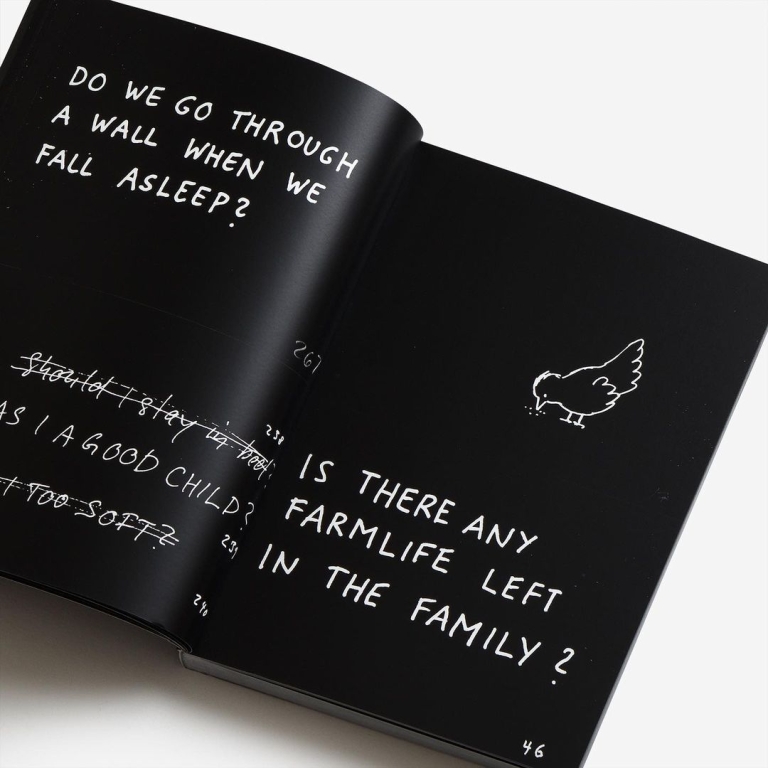 DO WE GO THROUGH
A WALL WHEN WE
FALL ASLEEP?
267
Should I stay in
238
AS I A GOOD CHILD?
239
I TOO SOFT?
240
IS THERE ANY
FARMLIFE LEFT
IN THE FAMILY?
46